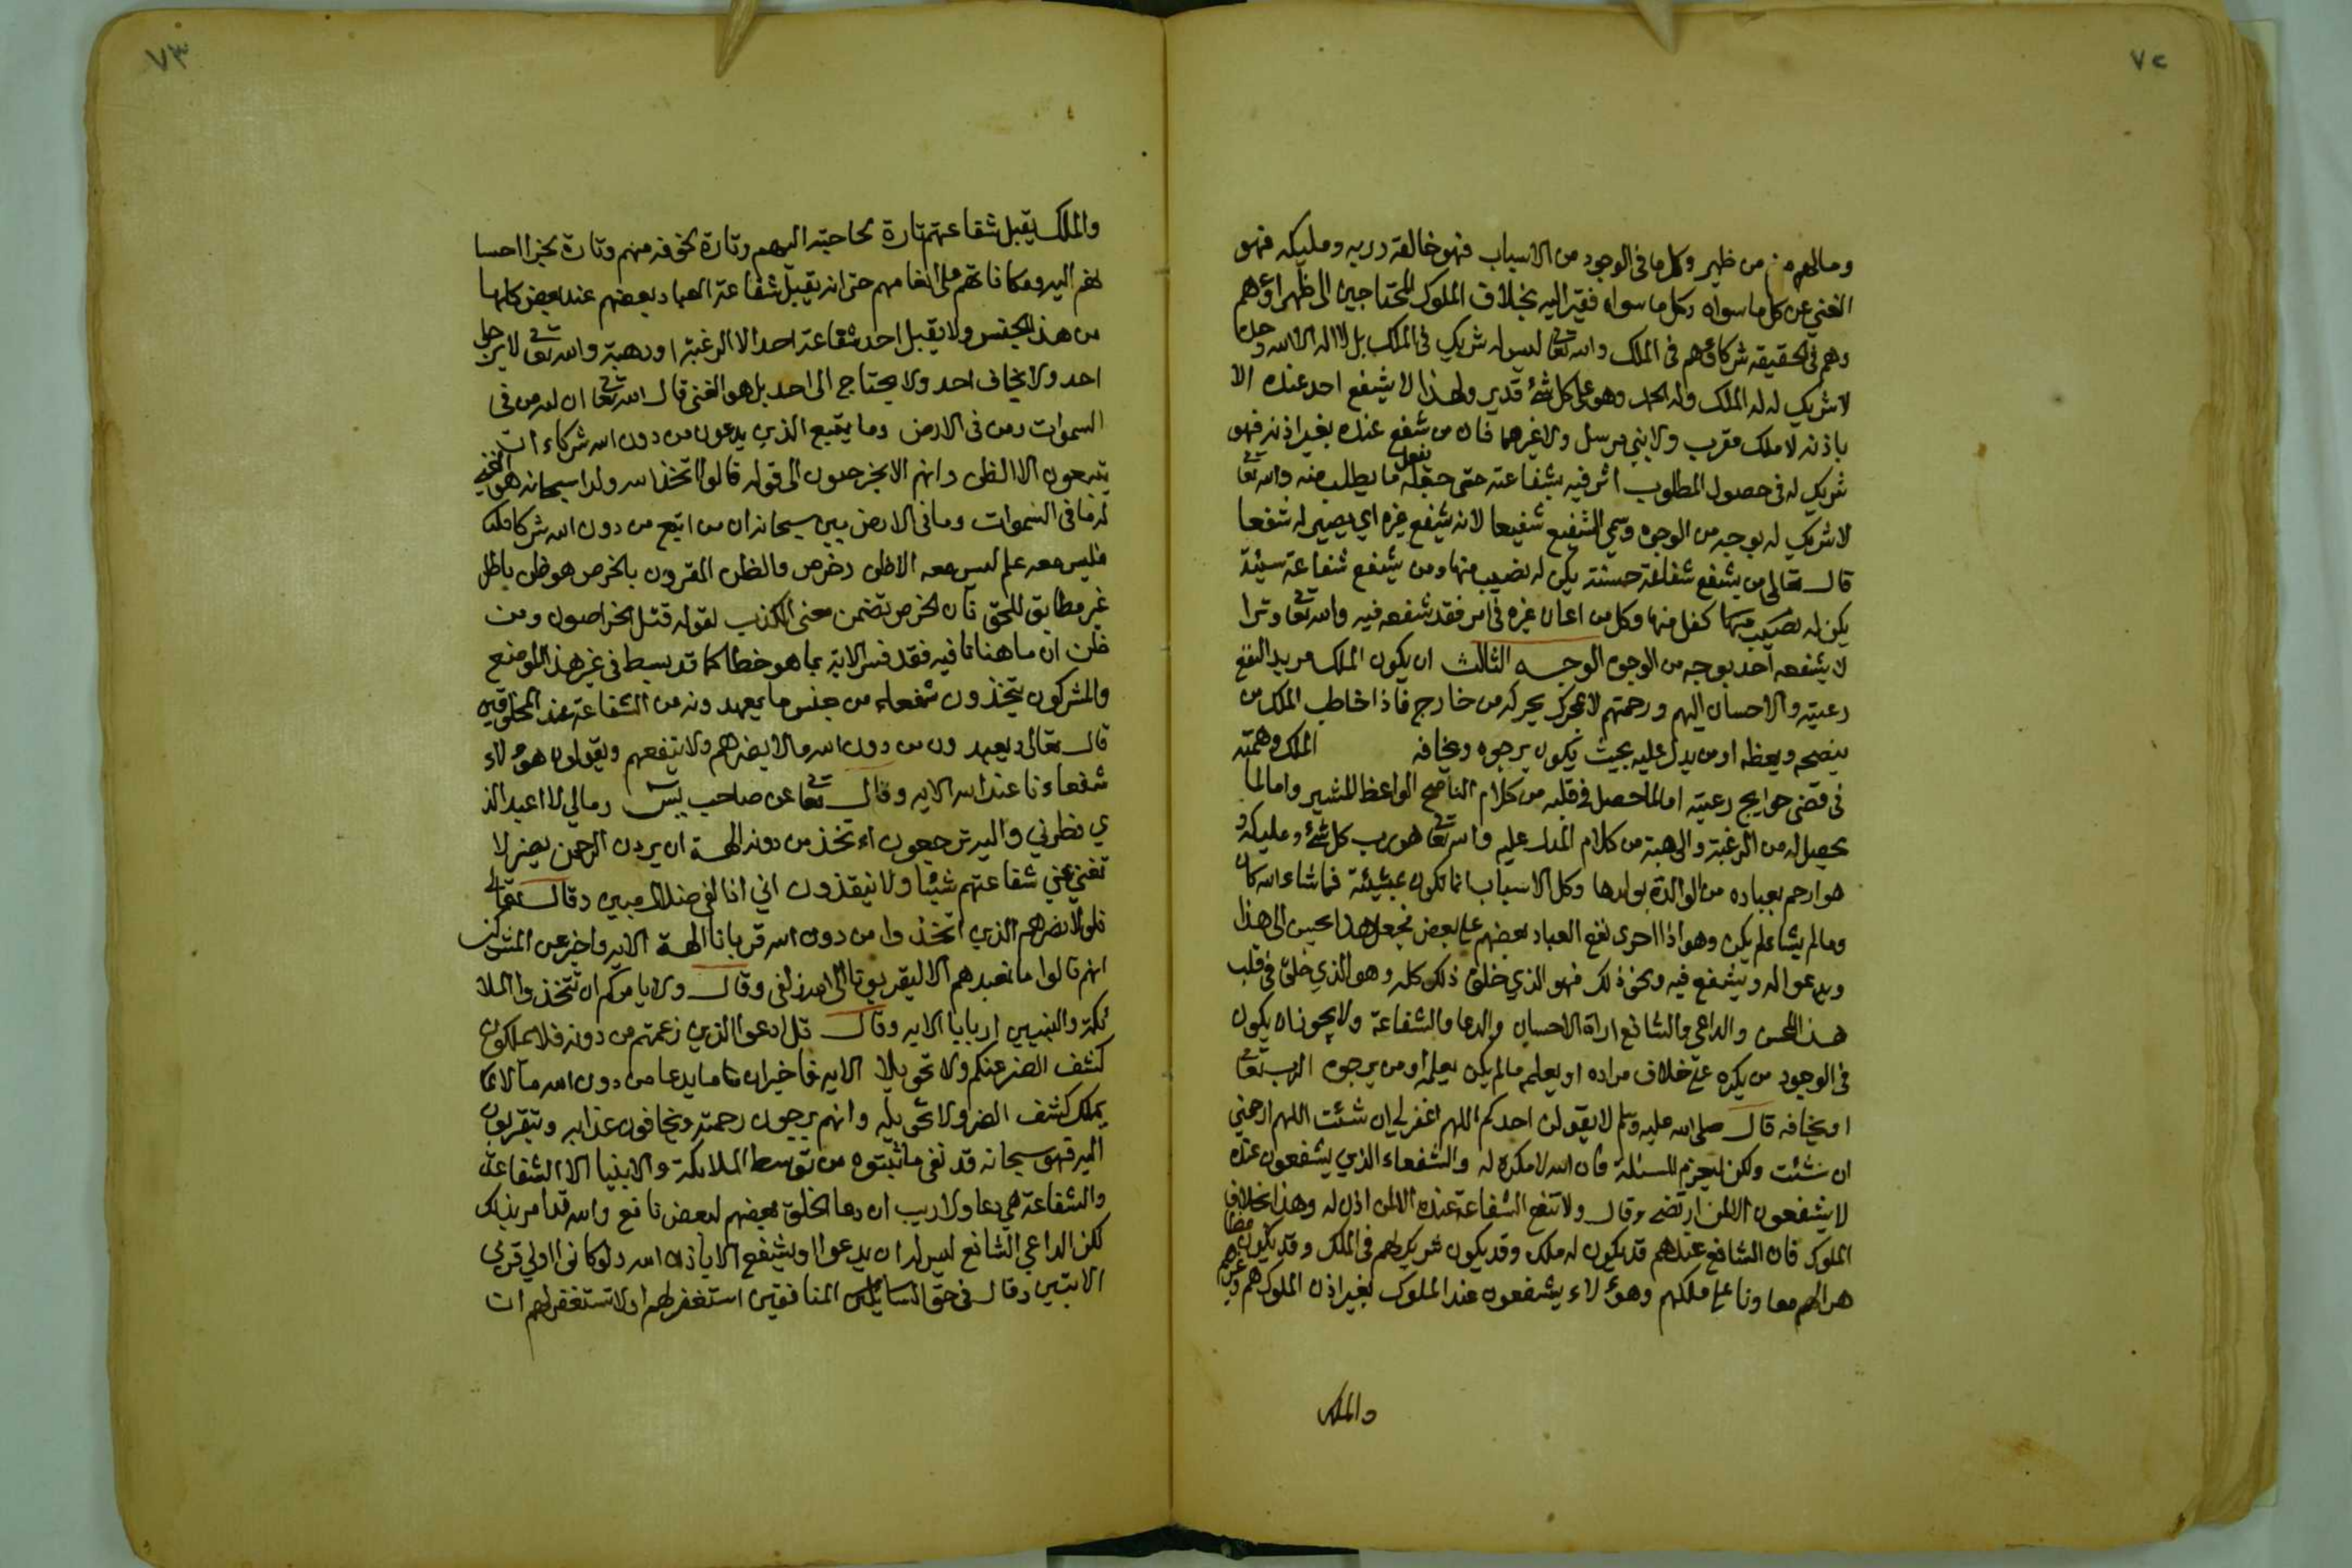 ٧٢
وما لهم منهم من ظهير وكل ما في الوجود من الاسباب فهو خالقه وربه ومليكه فهو
الغني عن كل ما سواه وكل ما سواه فقير اليه بخلاف الملوك المحتاجين الى ظهراؤهم
وهم في الحقيقه شركاؤهم في الملك والله تعا ليس له شريك في الملك بل لا اله الا الله وحده
لا شريك له له الملك وله الحمد وهو على كل شئ قدير ولهذا لا يشفع احد عنده الا
باذنه لا ملك مقرب ولا نبي مرسل ولا غيرهما فان من شفع عنده بغير اذنه فهو
شريك له في حصول المطلوب اثر فيه بشفاعته حتى جعله يفعل ما يطلب منه والله تعا
لا شريك له بوجه من الوجوه وسمي الشفيع شفيعا لانه يشفع غيره اي يصير له شفعا
قال تعالى من يشفع شفاعة حسنة يكن له نصيب منها ومن يشفع شفاعة سيئة
يكن له نصيب منها كفل منها وكل من اعان غيره في امر فقد شفعه فيه والله تعا وترا
لا يشفعه احد بوجه من الوجوه الوجه الثالث ان يكون الملك مريد النفع
رعيته والاحسان اليهم ورحمتهم لا لمحرك يحركه من خارج فاذا خاطب الملك من
ينصحه ويعظه او من يدل عليه بحيث يكون يرجوه ويخافه الملك وهمته
في قضى حوايج رعيته اما لما حصل في قلبه من كلام الناصح الواعظ المشير واما لما
يحصل له من الرغبة والرهبة من كلام المدل عليه والله تعا هو رب كل شئ ومليكه و
هو ارحم بعباده من الوالدة بولدها وكل الاسباب انما تكون بمشيئته فما شاء الله كان
وما لم يشا لم يكن وهو اذا اجرى نفع العباد بعضهم على بعض فجعل هذا يحسن الى هذا
ويدعوا له ويشفع فيه ونحو ذلك فهو الذي خلق ذلك كله وهو الذي خلق في قلب
هذا المحسن والداعي والشافع ارادة الاحسان والدعا والشفاعة ولا يجوز ان يكون
في الوجود من يكره على خلاف مراده او يعلمه ما لم يكن يعلمه او من يرجوه الرب تعا
او يخافه قال صلى الله عليه وسلم لا يقولن احدكم اللهم اغفر لي ان شئت اللهم ارحمني
ان شئت ولكن ليجزم المسئلة فان الله لا مكره له والشفعاء الذي يشفعون عنده
لا يشفعون الا لمن ارتضى وقال ولا تنفع الشفاعة عنده الا لمن اذن له وهذا بخلاف
الملوك فان الشافع عندهم قد يكون له ملك وقد يكون شريك لهم في الملك وقد يكون مظا
هر الهم معاونا على ملكهم وهؤلاء يشفعون عند الملوك بغير اذن الملوك هم وغيرهم
والملك
٧٣
والملك يقبل شفاعتهم تارة لحاجته اليهم وتارة لخوفه منهم وتارة لجزا احسا
نهم اليه ومكافاتهم على انعامهم حتى انه يقبل شفاعة العباد بعضهم عند بعض كلها
من هذا الجنس ولا يقبل احد شفاعة احد الا الرغبة او رهبة والله تعا لا يرجوا
احد ولا يخاف احد ولا يحتاج الى احد بل هو الغني قال الله تعا ان لله من في
السموات ومن في الارض وما يتبع الذي يدعون من دون الله شركاء ان
يتبعون الا الظن وانهم الا يخرصون الى قوله قالوا اتخذ الله ولدا سبحانه هو الغني
له ما في السموات وما في الارض بين سبحانه ان من اتبع من دون الله شركا
فليس معه علم ليس معه الا ظن وخرص والظن المقرون بالخرص هو ظن باطل
غير مطابق للحق فان الخرص تضمن معنى الكذب لقوله قتل الخراصون ومن
ظن ان ما هنا نافيه فقد فسر الاية بما هو خطا كما قد بسط في غير هذا الموضع
والمشركون يتخذون شفعاء من جنس ما يعهدونه من الشفاعة عند المخلوقين
قال تعالى ويعبدون من دون الله ما لا يضرهم ولا ينفعهم ويقولون هؤلاء
شفعاؤنا عند الله الايه وقال تعا عن صاحب يس ومالي لا اعبد الذ
ي فطرني واليه ترجعون اءتخذ من دونه الهة ان يردن الرحمن بضر لا
تغني عني شفاعتهم شيئا ولا ينقذون اني اذا لفي ضلال مبين وقال تعالى
فلولا نصرهم الذي اتخذوا من دون الله قربانا الهة الايه واخبر عن المشركين
انهم قالوا ما نعبدهم الا ليقربونا الى الله زلفى وقال ولا يامركم ان تتخذوا الملا
ئكة والنبيين اربابا الايه وقال قل ادعوا الذين زعمتم من دونه فلا يملكون
كشف الضر عنكم ولا تحويلا الايه فاخبر ان ما يدعا من دون الله
يملك كشف الضر ولا تحويله وانهم يرجون رحمته ويخافون عذابه ويتقربون
اليه فهو سبحانه قد نفى ما اثبتوه من توسط الملائكة والانبيا الا الشفاعة
والشفاعة هي دعا ولا ريب ان دعا الخلق بعضهم لبعض نافع والله قد امر بذلك
لكن الداعي الشافع ليس له ان يدعوا او يشفع الا باذن الله ولو كانوا اولي قربى
الايتين وقال في حق المنافقين استغفر لهم او لا تستغفر لهم ان